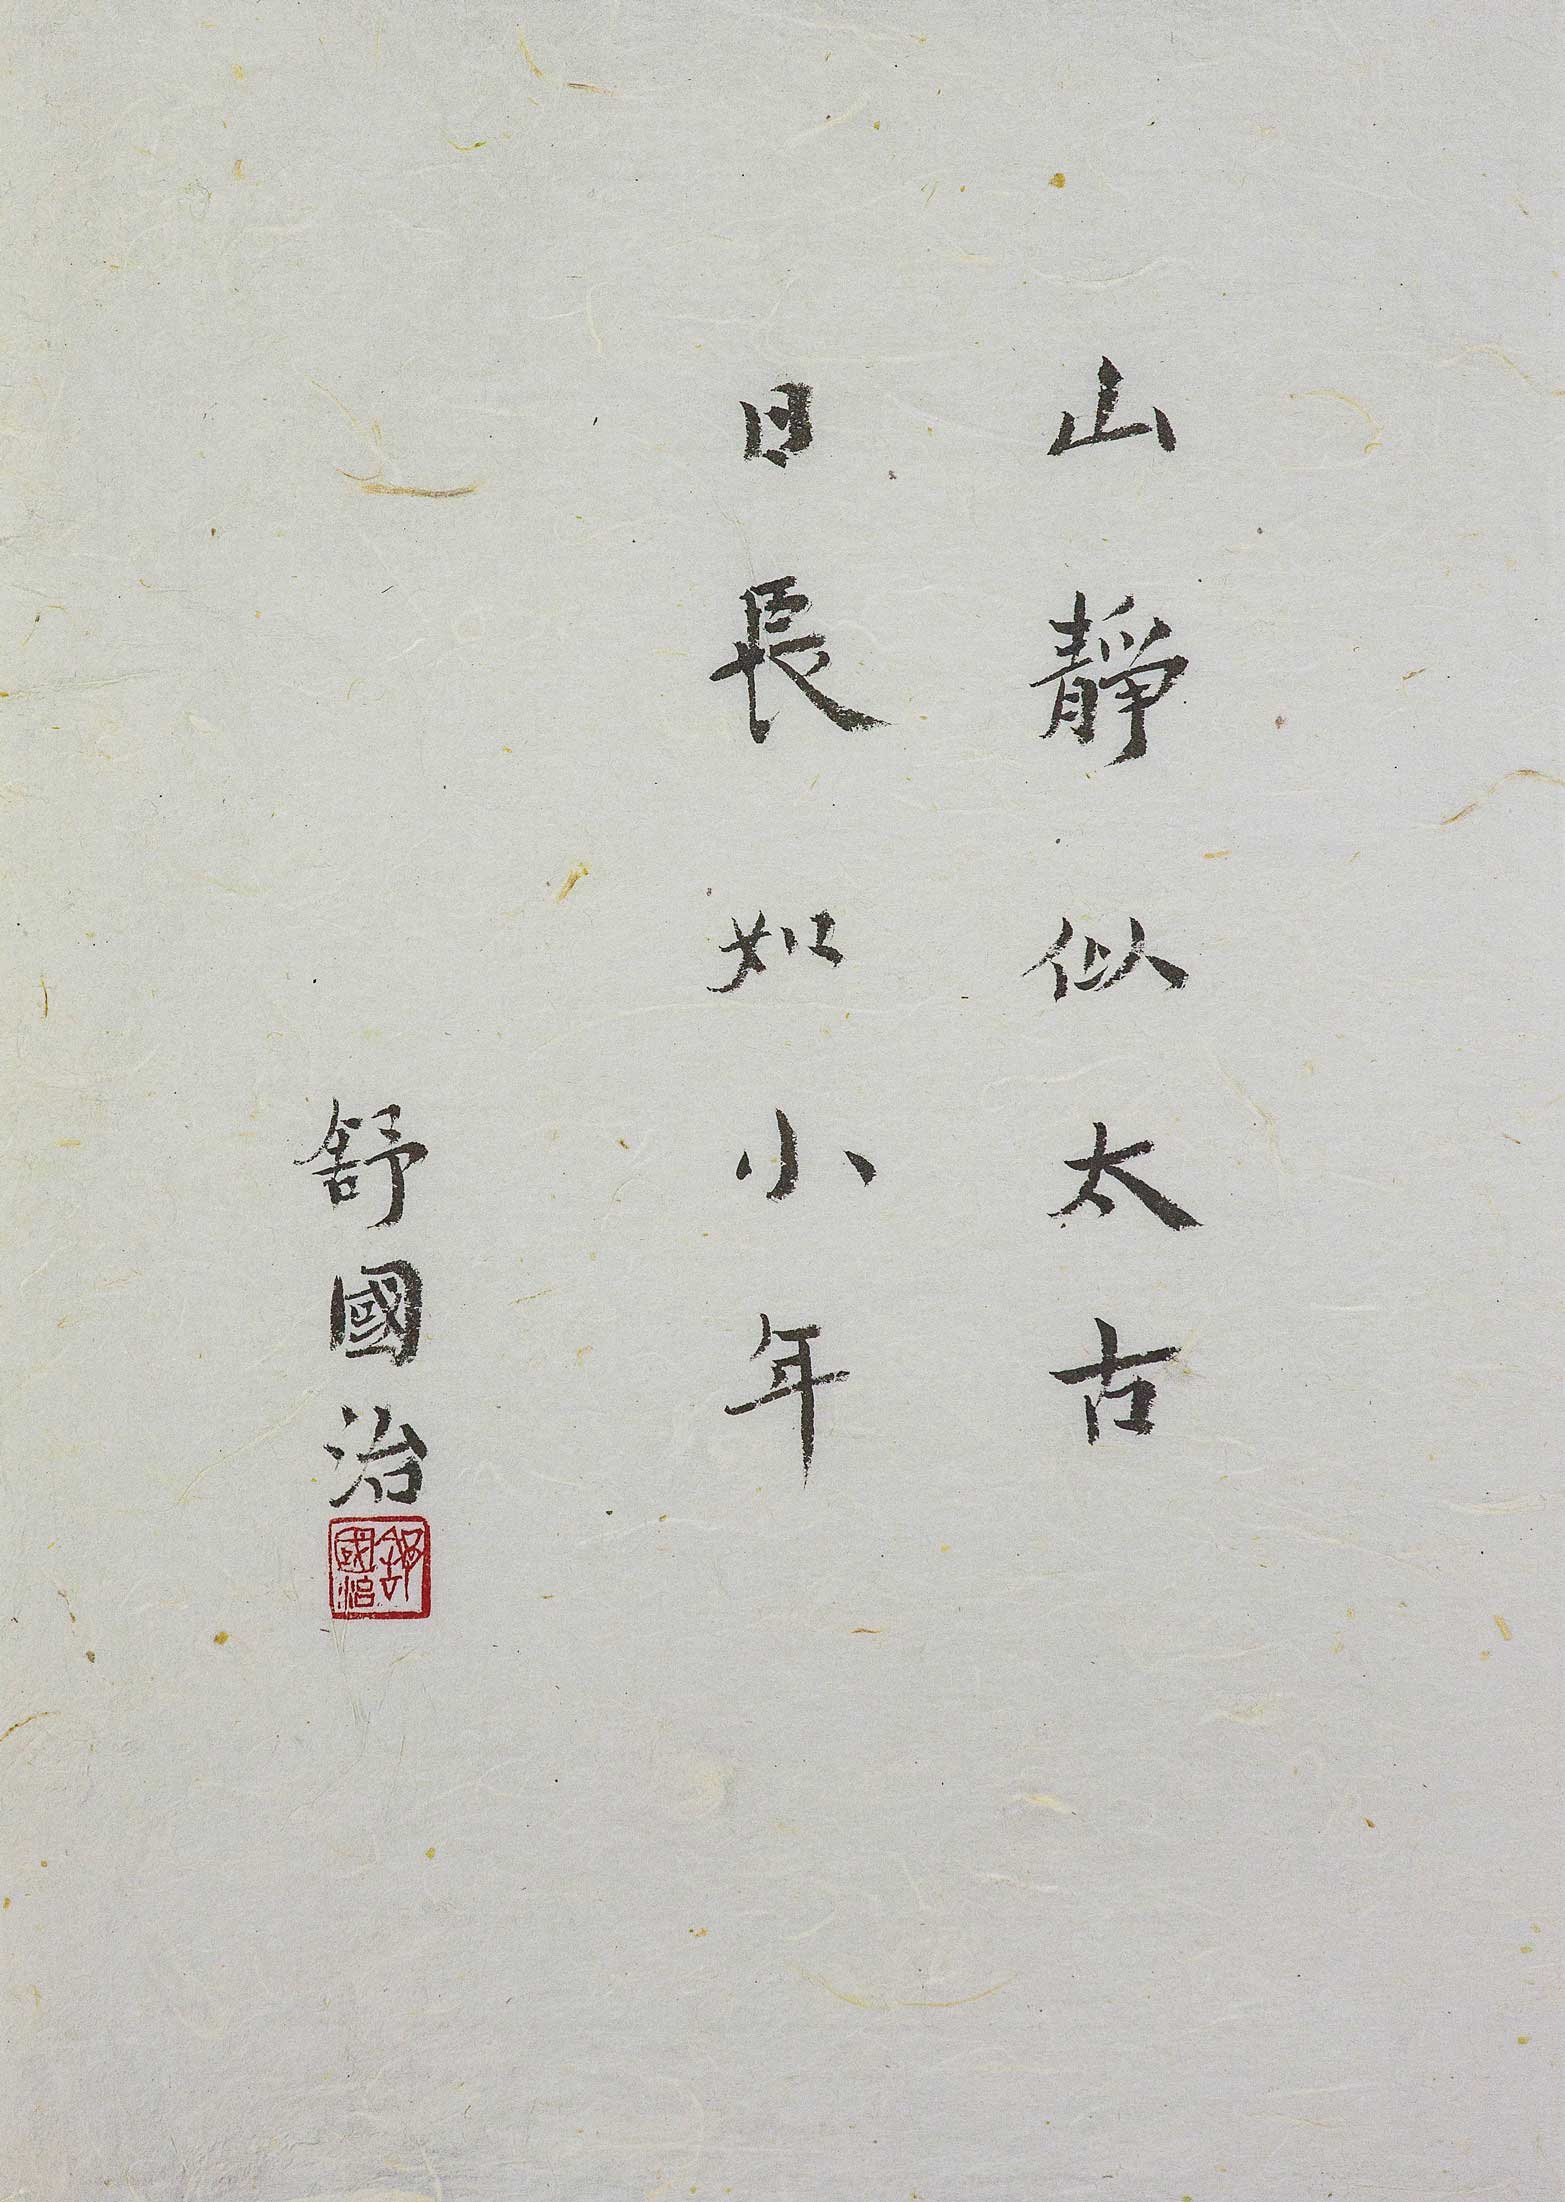 山靜似太古
日長如小年
舒國治
舒國治